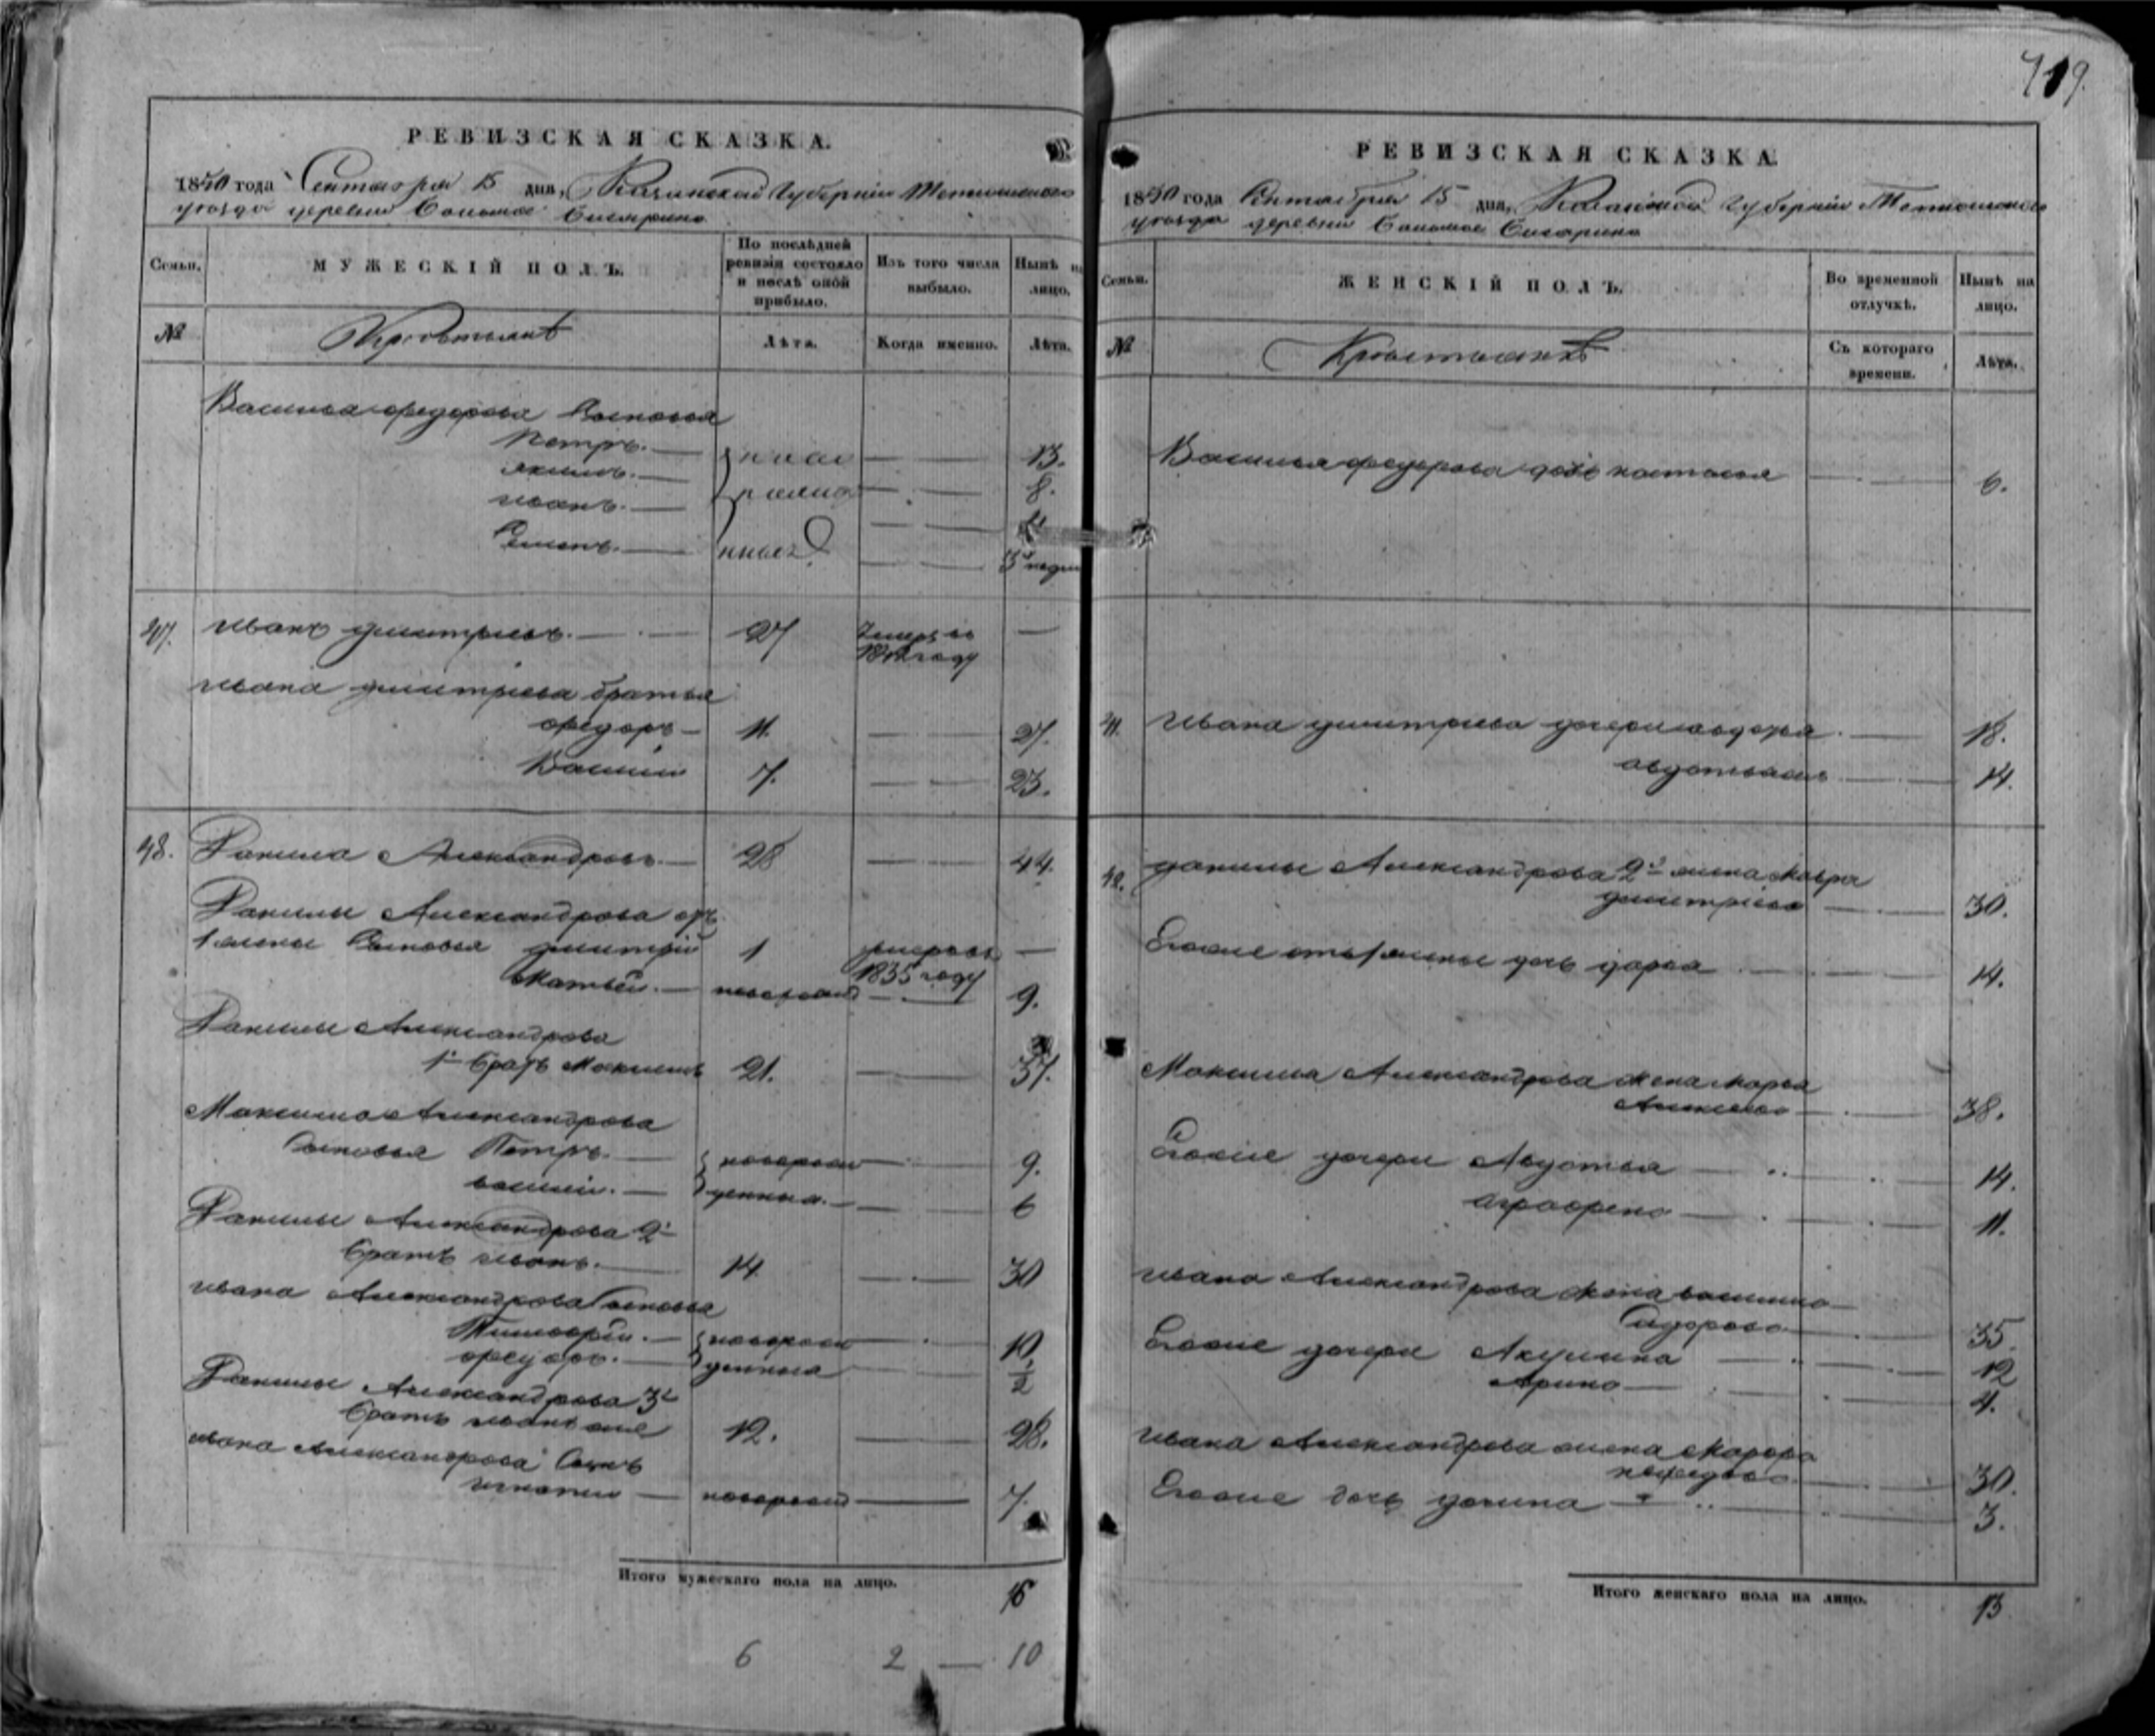 719.
РЕВИЗСКАЯ СКАЗКА.
1850 года Сентября 15 дня, Казанской Губерніи Тетюшскаго
уезда деревни
Семьи.
МУЖЕСКІЙ ПОЛЪ.
По послѣдней ревизіи состояло и послѣ оной прибыло.
Изъ того числа выбыло.
Нынѣ на лицо.
№
Крестьянѣ
Лѣта.
Когда именно.
Лѣта.
Василья Федорова Сыновья
Петръ. — 13.
Якимъ. — 8.
Иванъ. —
Семенъ. — 3 недели
47. Иванъ Дмитріевъ. — 27 Умеръ въ —
году
Ивана Дмитріева братья
Федоръ — 11. — 27.
Василій 7. — 23.
48. Данила Александровъ — 28 — 44.
Данилы Александрова отъ
1 жены Сыновья Дмитрій 1 умеръ въ —
1835 году
Матвей. — новорожд — 9.
Данилы Александрова
1й братъ Максимъ 21. — 37.
Максима Александрова
Сыновья Петръ. — новорож — 9.
Василій. — денныя. — 6
Данилы Александрова 2й
братъ Иванъ. — 14 — 30
Ивана Александрова Сыновья
Тимофей. — новорож — 10
Федоръ. — денныя — 1/2
Данилы Александрова 3й
братъ Иванъ же 12. — 28.
Ивана Александрова Сынъ
Игнатій — новорожд — 7.
Итого мужескаго пола на лицо. 16
6 2 — 10
РЕВИЗСКАЯ СКАЗКА.
1850 года Сентября 15 дня, Казанской Губерніи Тетюшскаго
уезда деревни
Семьи.
ЖЕНСКІЙ ПОЛЪ.
Во временной отлучкѣ.
Нынѣ на лицо.
№
Крестьянкѣ
Съ котораго времени.
Лѣта.
Василья Федорова дочь Настасья — 6.
Ивана Дмитріева дочери — 18.
— 14.
48. Данилы Александрова 2я жена Мавра
Дмитріева — 30.
Егоже отъ 1 жены дочь Дарья — 14.
Максима Александрова жена Марья
— 38.
Егоже дочери Авдотья — 14.
Аграфена — 11.
Ивана Александрова жена Василиса
Сидорова — 35.
Егоже дочери Акулина — 12
Арина — 4.
Ивана Александрова жена
— 30.
Егоже дочь — 3.
Итого женскаго пола на лицо. 13